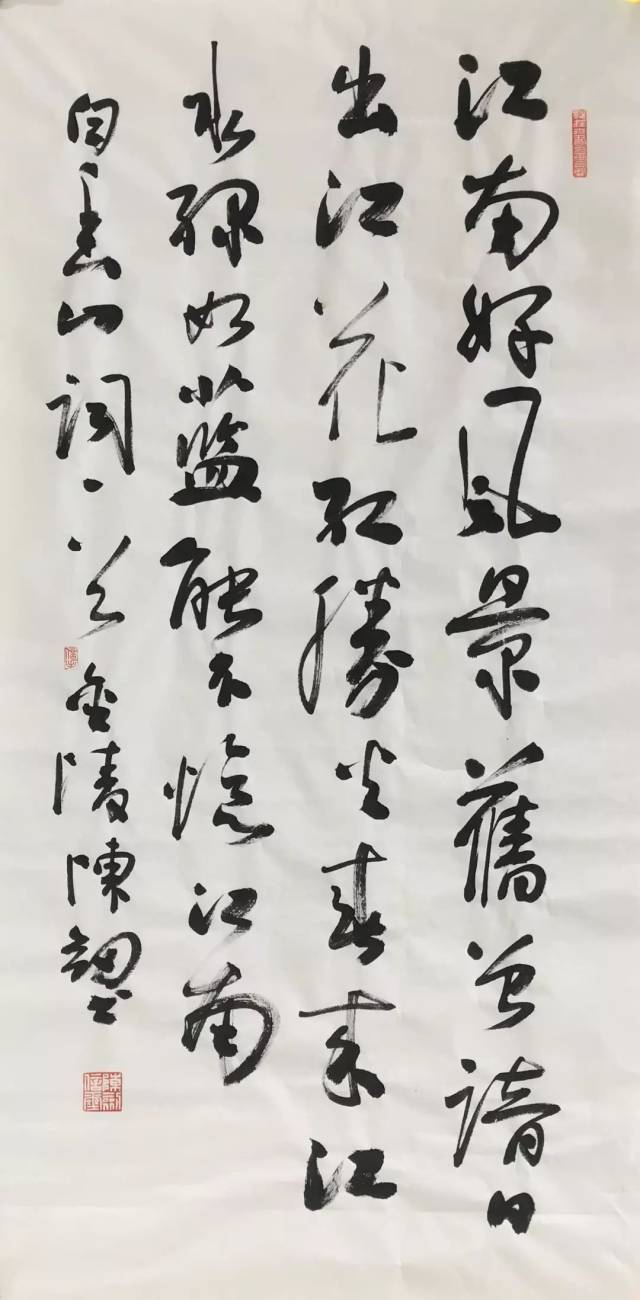 江南好風景舊曾諳日
出江花紅勝火春來江
水綠如藍能不憶江南
白香山詞一首金陵陳